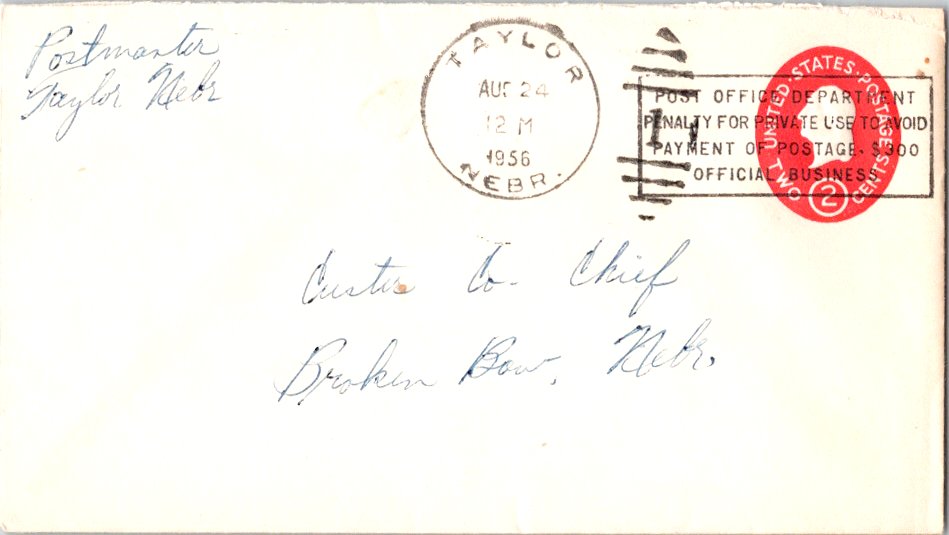 Postmaster
Taylor Nebr
TAYLOR
AUG 24
12 M
1956
NEBR.
POST OFFICE DEPARTMENT
PENALTY FOR PRIVATE USE TO AVOID
PAYMENT OF POSTAGE, $300
OFFICIAL BUSINESS
UNITED·STATES·POSTAGE
TWO 2 CENTS
Custer Co. Chief
Broken Bow, Nebr.